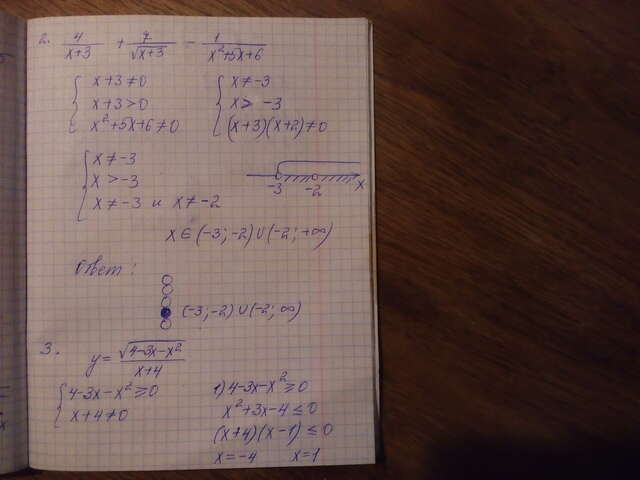 2. 4/(x+3) + 7/√(x+3) − 1/(x²+5x+6)
{ x+3≠0
x+3>0
x²+5x+6≠0
{ x≠-3
x> -3
(x+3)(x+2)≠0
{ x≠-3
x>-3
x≠-3 и x≠-2
-3 -2 x
x∈(-3;-2)∪(-2;+∞)
Ответ:
(-3;-2)∪(-2;∞)
3. y= √(4-3x-x²)/(x+4)
{ 4-3x-x²≥0
x+4≠0
1) 4-3x-x²≥0
x²+3x-4≤0
(x+4)(x-1)≤0
x=-4 x=1